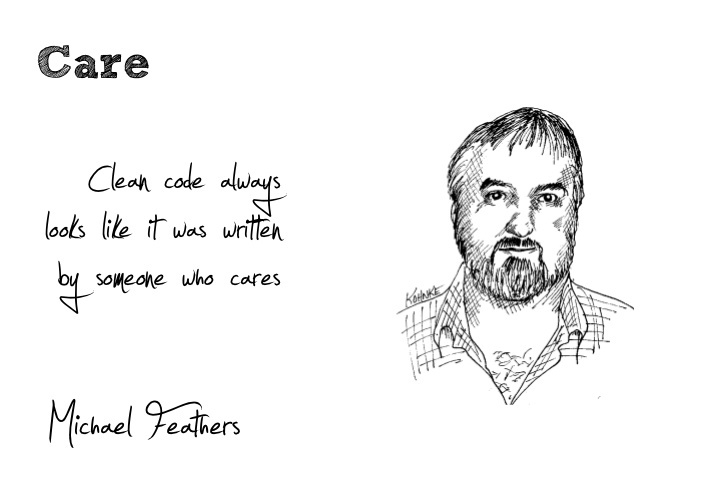 Care
Clean code always
looks like it was written
by someone who cares
KOHNKE
Michael Feathers